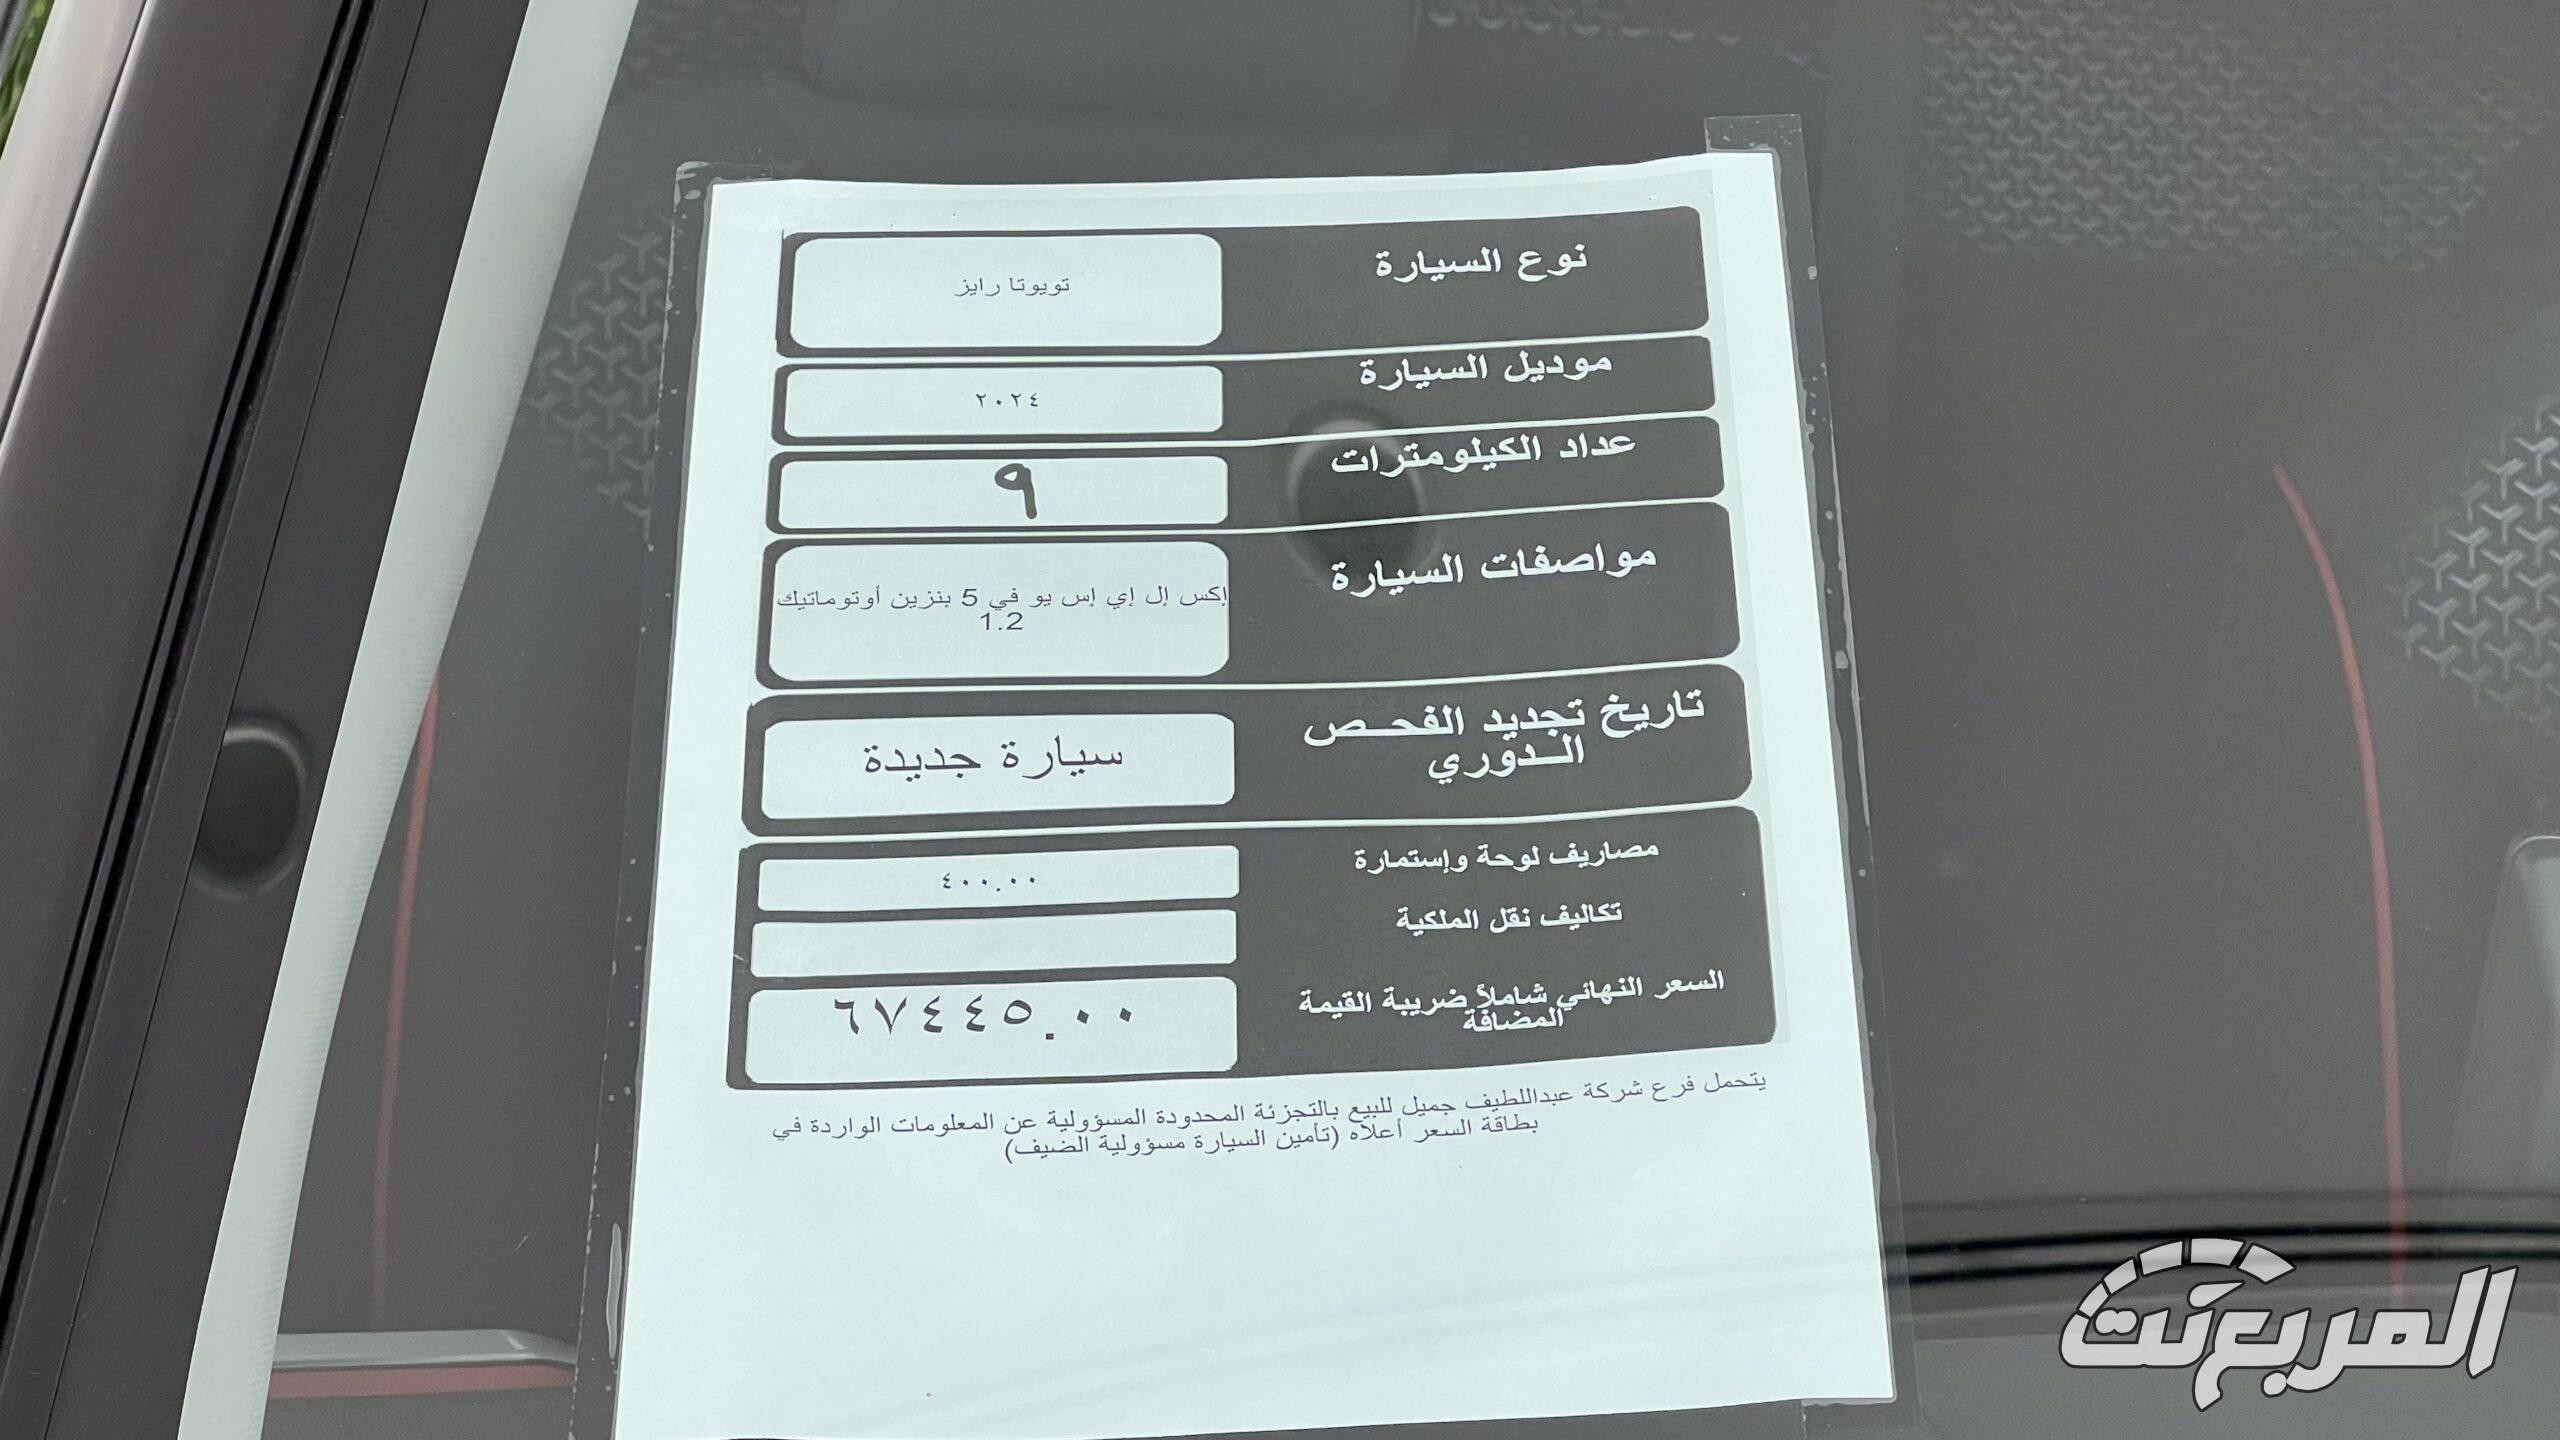 نوع السيارة
تويوتا رايز
موديل السيارة
٢٠٢٤
عداد الكيلومترات
٩
مواصفات السيارة
إكس إل إي إس يو في 5 بنزين أوتوماتيك
1.2
تاريخ تجديد الفحـــص
الــدوري
سيارة جديدة
مصاريف لوحة وإستمارة
٤٠٠.٠٠
تكاليف نقل الملكية
السعر النهائي شاملاً ضريبة القيمة
المضافة
٦٧٤٤٥.٠٠
يتحمل فرع شركة عبداللطيف جميل للبيع بالتجزئة المحدودة المسؤولية عن المعلومات الواردة في
بطاقة السعر أعلاه (تأمين السيارة مسؤولية الضيف)
المربع نت